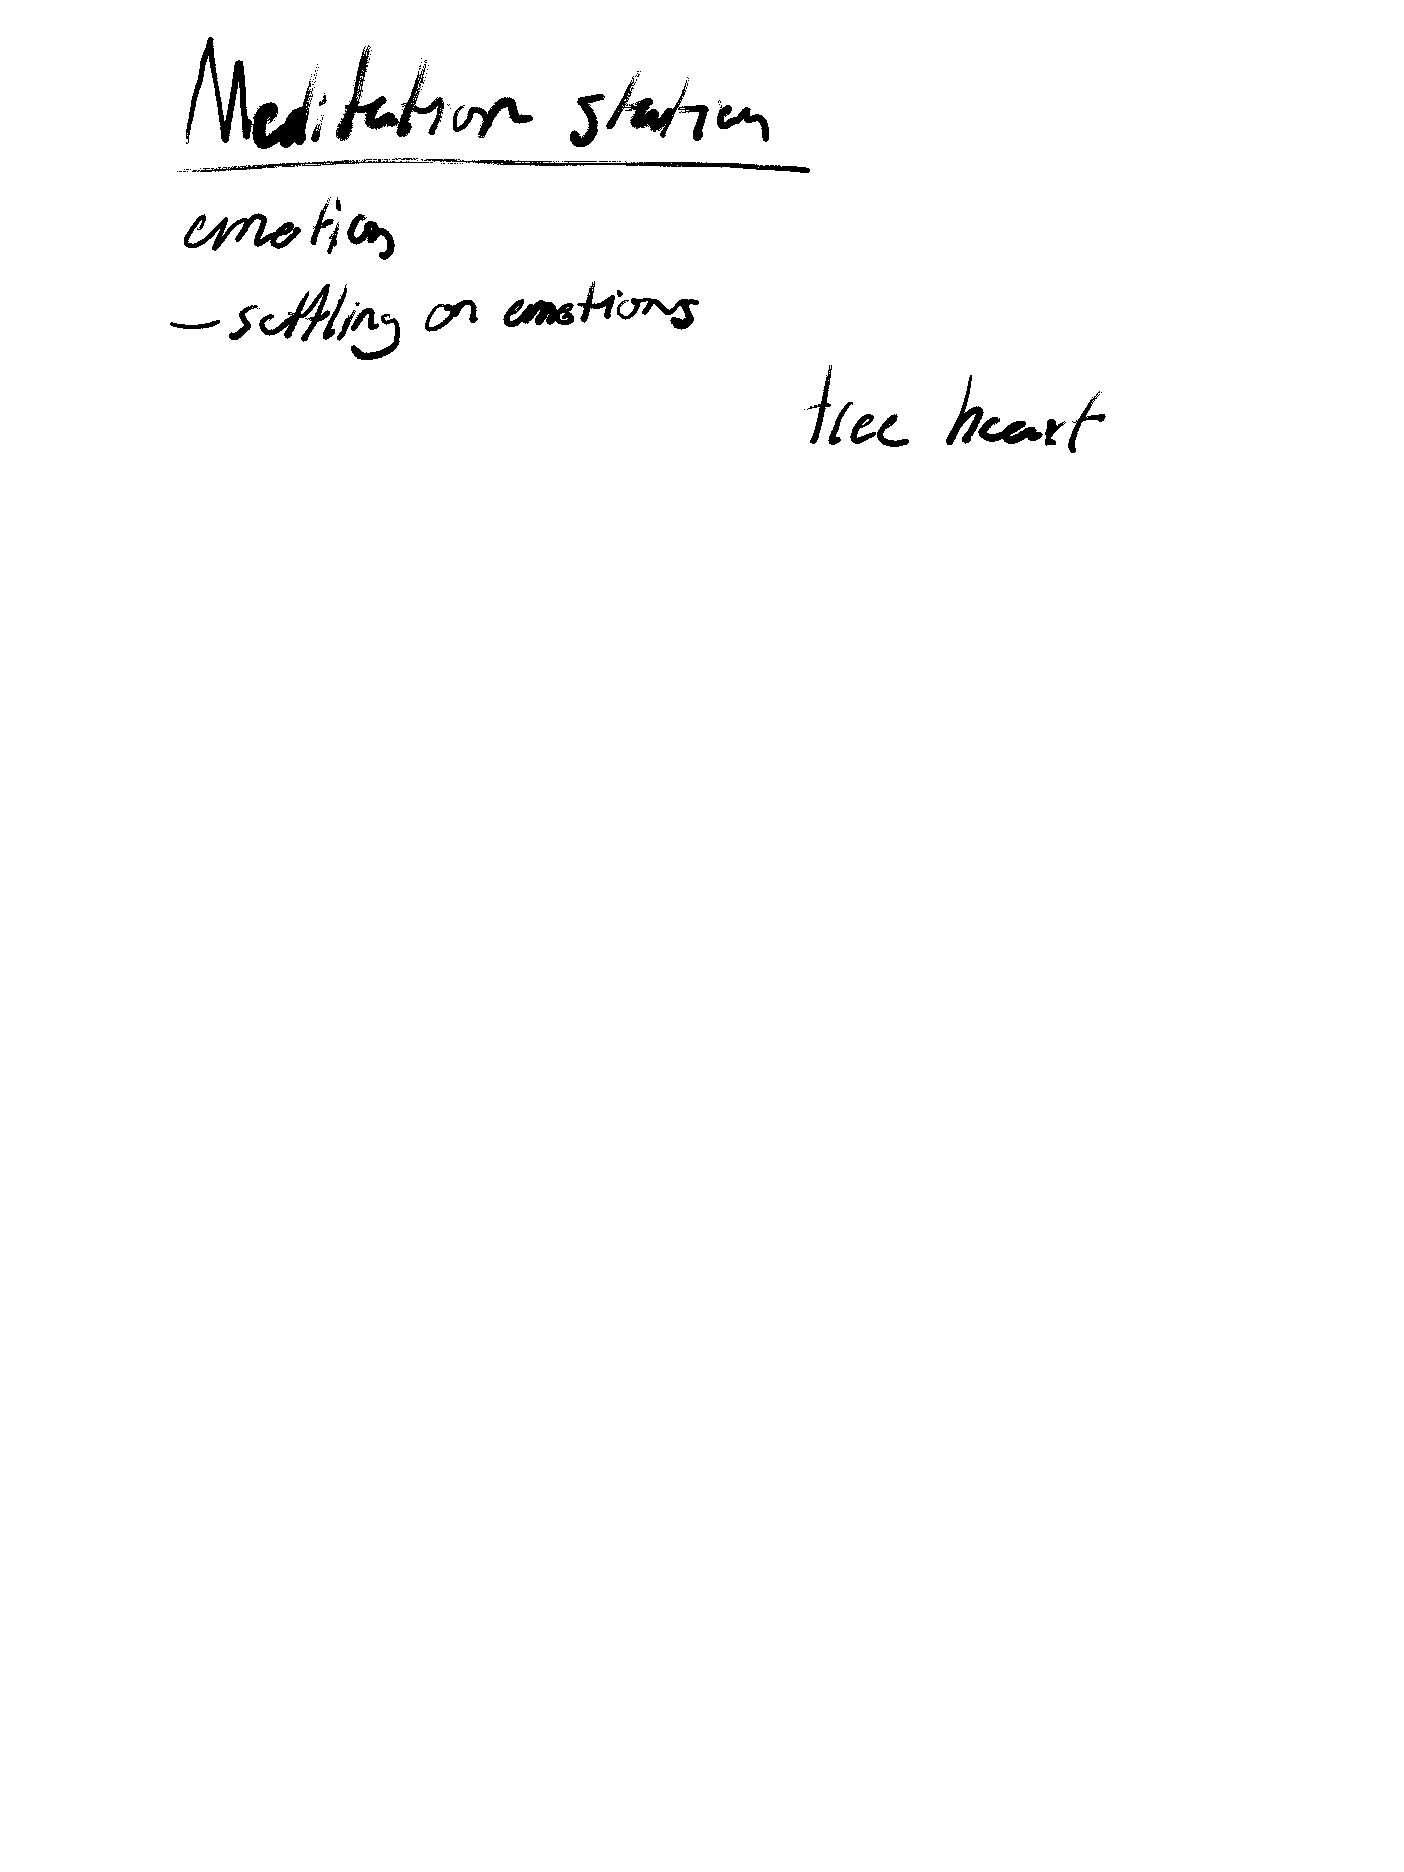 Meditation station
emotion
- settling on emotions
tree heart